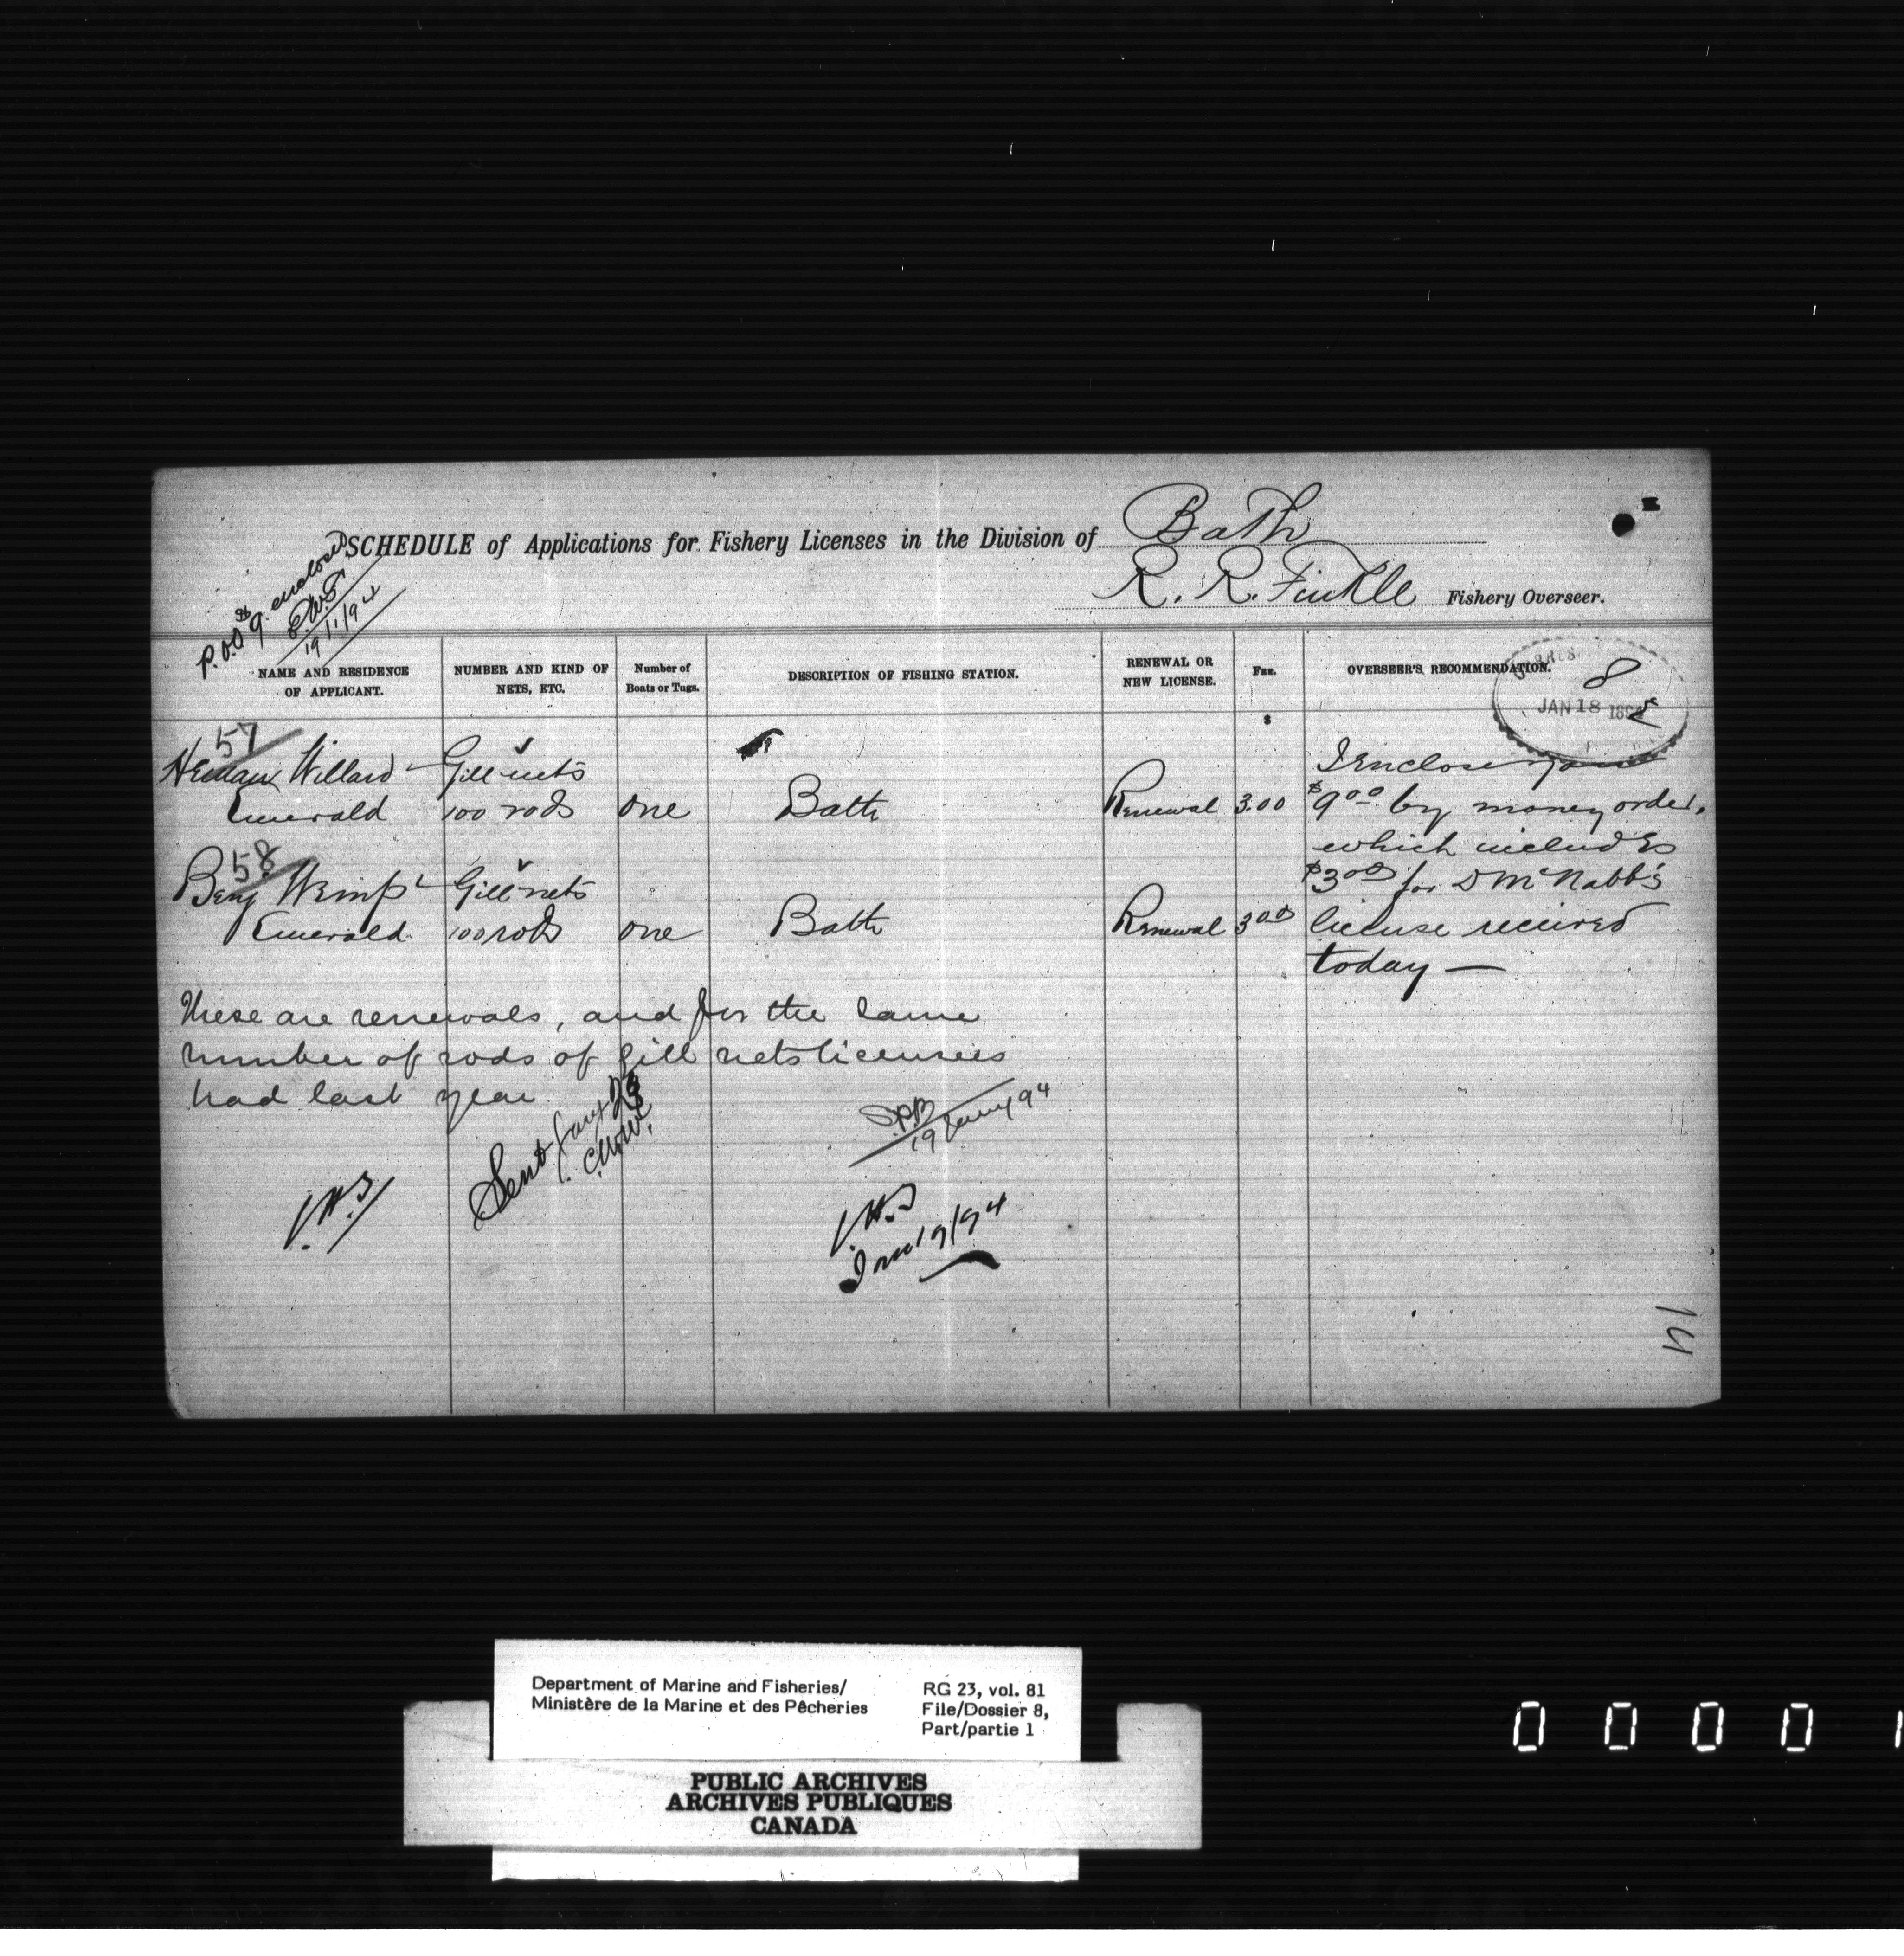 SCHEDULE of Applications for Fishery Licenses in the Division of Bath
R. R. Finkle Fishery Overseer.
P.O.O $9. enclosed
19/1/94
NAME AND RESIDENCE OF APPLICANT.
NUMBER AND KIND OF NETS, ETC.
Number of Boats or Tugs.
DESCRIPTION OF FISHING STATION.
RENEWAL OR NEW LICENSE.
FEE.
OVERSEER'S RECOMMENDATION.
$
8
JAN 18 189
57
Heman Willard Gill nets
Emerald 100 rods one Bath Renewal 3.00
58
Benj Wemp Gill nets
Emerald 100 rods one Bath Renewal 3.00
I Enclose you
$9.00 by money order,
which includes
$3.00 for D McNabb's
license recieved
today —
These are renewals, and for the same
number of rods of gill nets licensees
had last year
Sent Jany 23
S.P.B
19 Jany 94
19/94
141
Department of Marine and Fisheries/
Ministère de la Marine et des Pêcheries
RG 23, vol. 81
File/Dossier 8,
Part/partie 1
PUBLIC ARCHIVES
ARCHIVES PUBLIQUES
CANADA
0 0 0 0 1